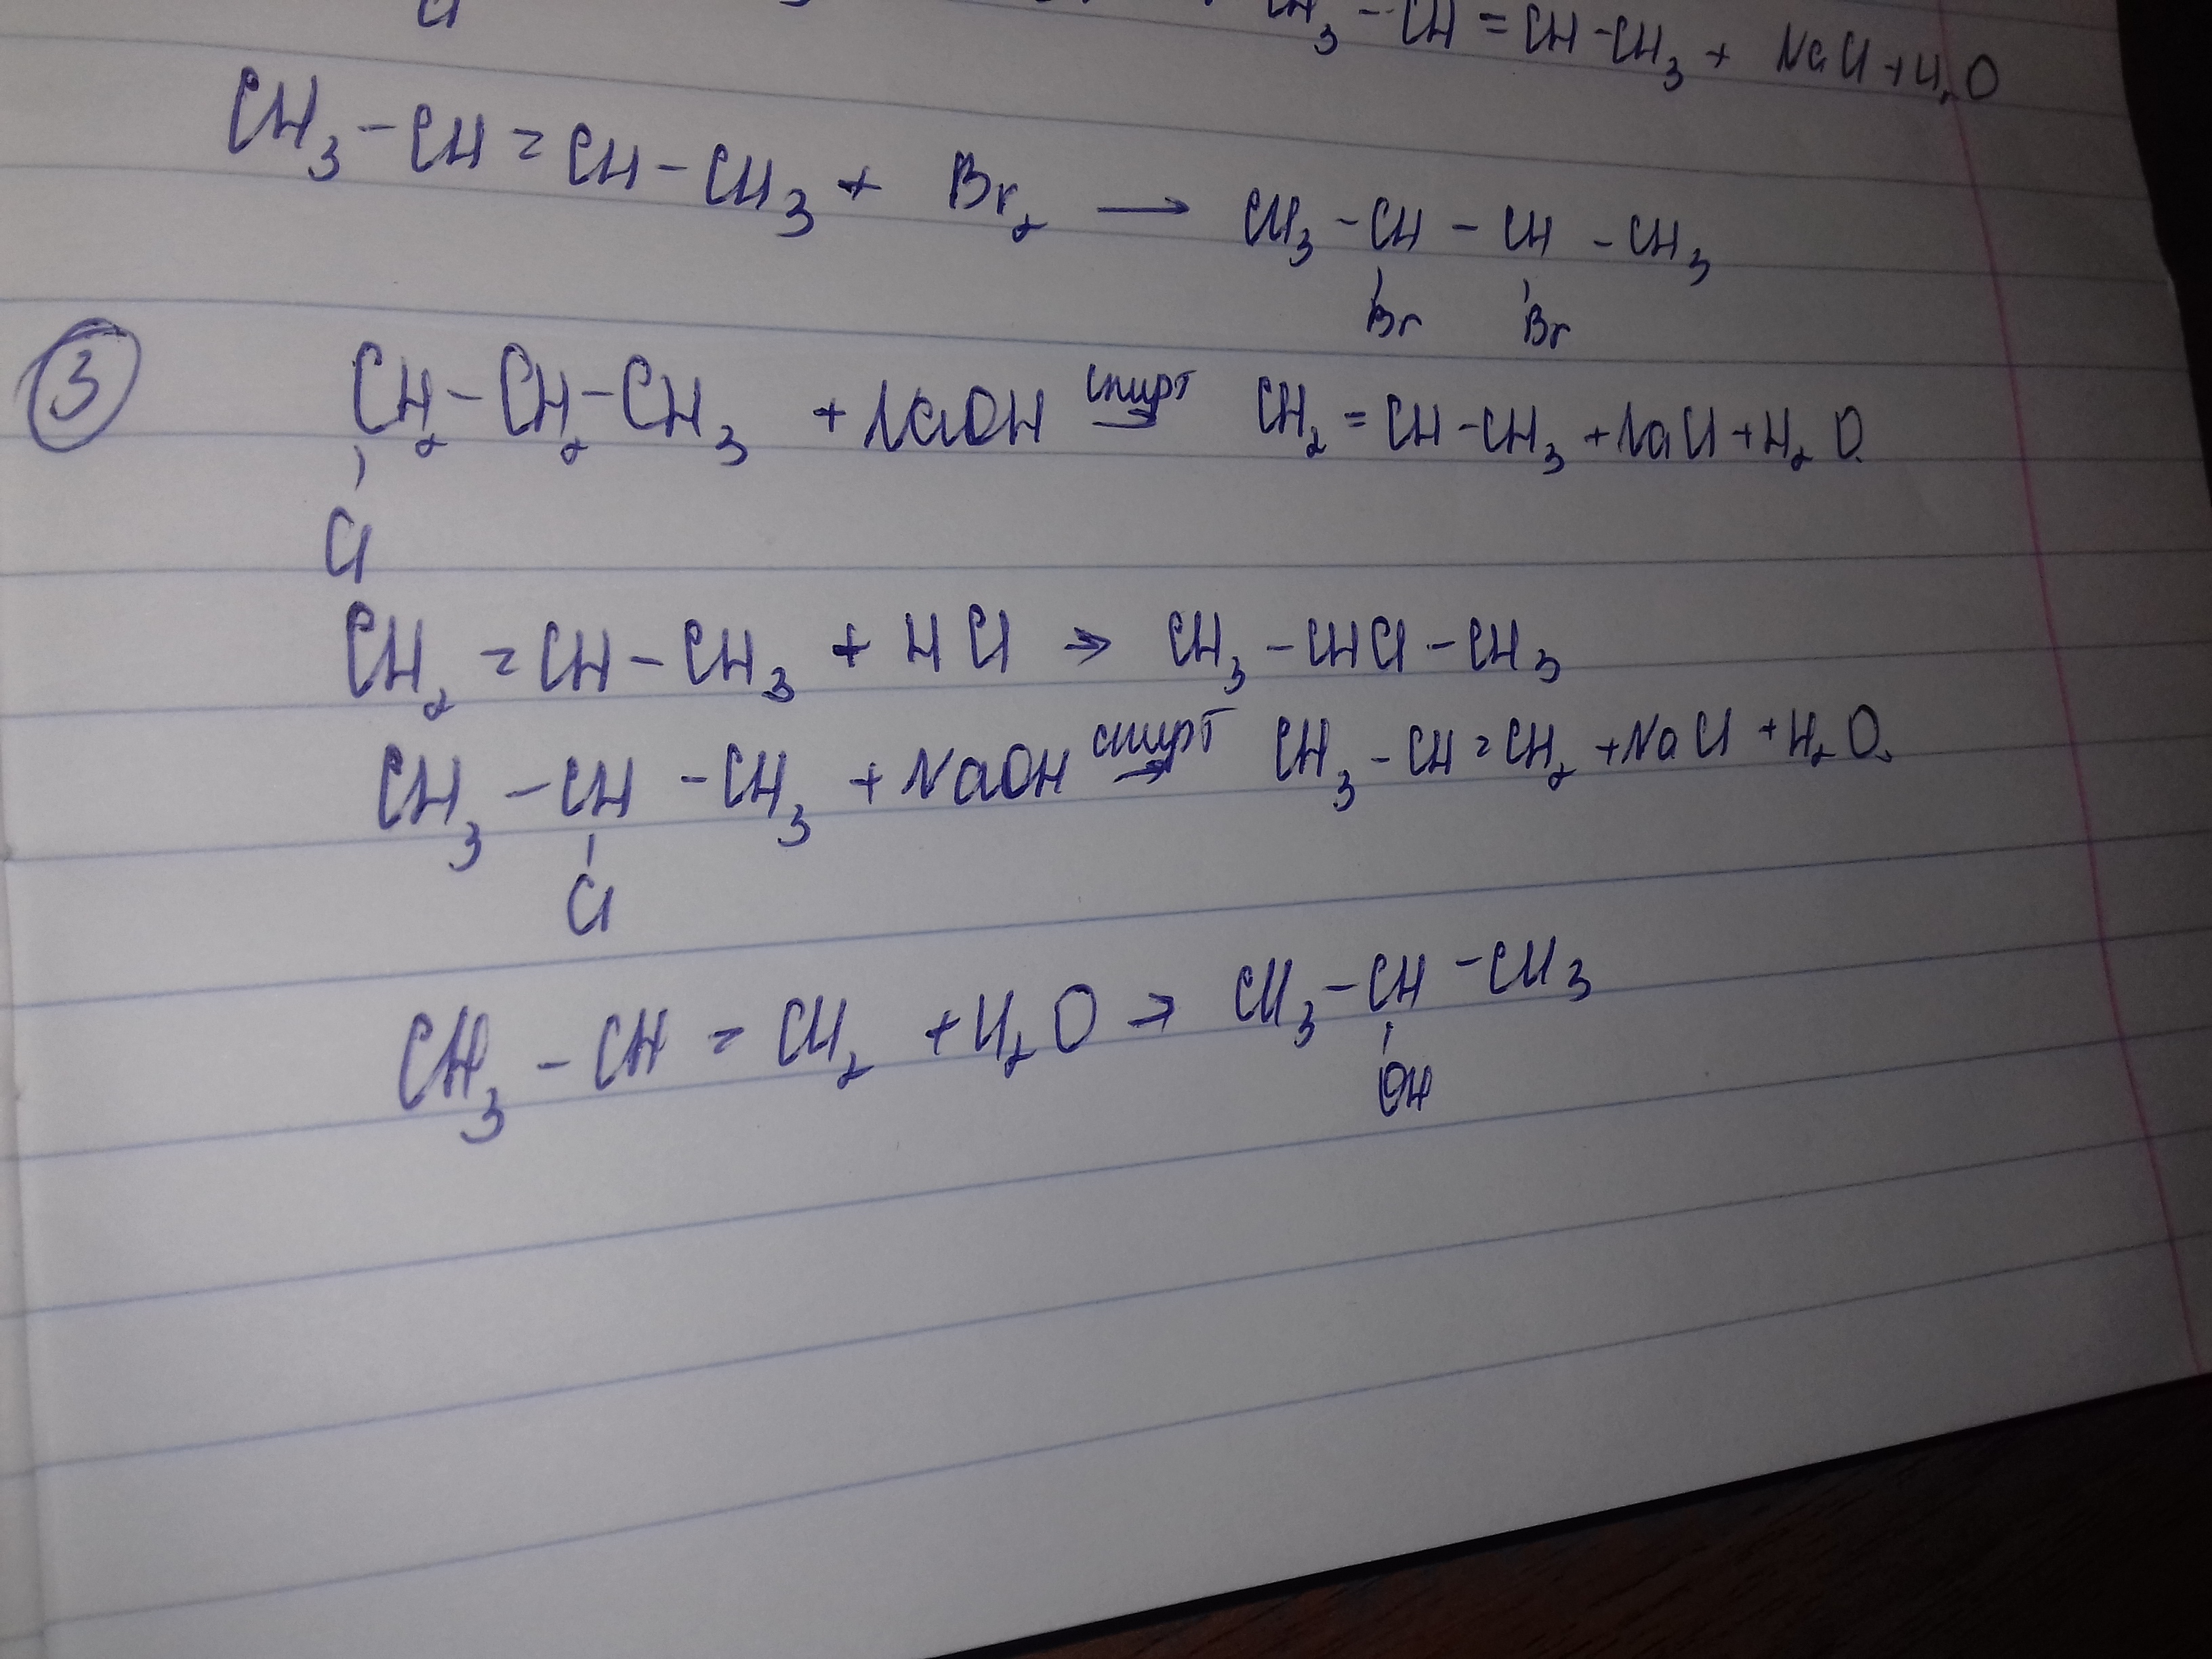 Cl CH₃ - CH = CH - CH₃ + NaCl + H₂O
CH₃ - CH = CH - CH₃ + Br₂ → CH₃ - CH - CH - CH₃
Br Br
3 CH₂ - CH₂ - CH₃ + NaOH спирт → CH₂ = CH - CH₃ + NaCl + H₂O.
Cl
CH₂ = CH - CH₃ + HCl → CH₃ - CHCl - CH₃
CH₃ - CH - CH₃ + NaOH спирт → CH₃ - CH = CH₂ + NaCl + H₂O.
Cl
CH₃ - CH = CH₂ + H₂O → CH₃ - CH - CH₃
OH